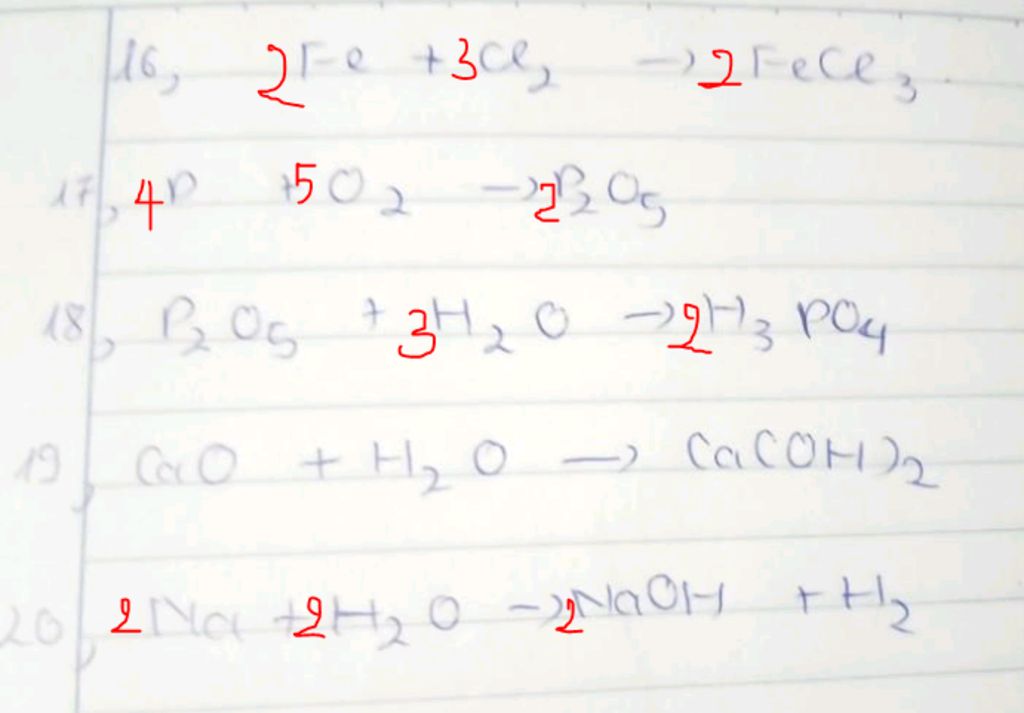 16, 2Fe + 3Cl2 → 2FeCl3
17, 4P + 5O2 → 2P2O5
18, P2O5 + 3H2O → 2H3PO4
19, CaO + H2O → Ca(OH)2
20, 2Na + 2H2O → 2NaOH + H2